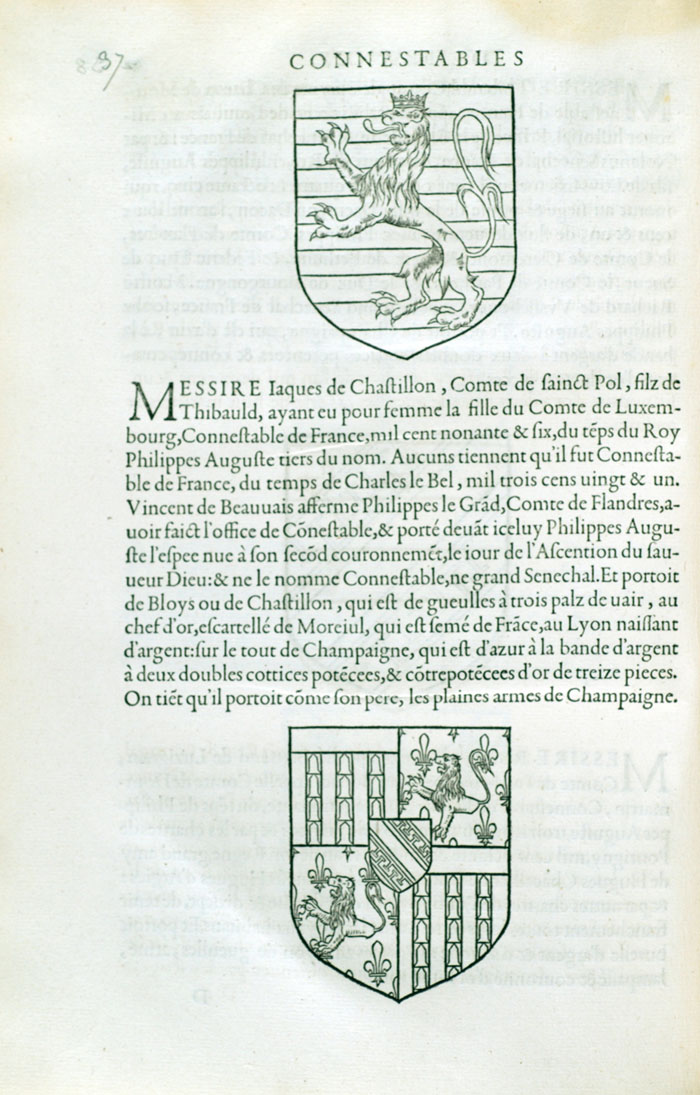 897
CONNESTABLES
MESSIRE Iaques de Chaſtillon, Comte de ſainct Pol, filz de
Thibauld, ayant eu pour femme la fille du Comte de Luxem-
bourg, Conneſtable de France, mil cent nonante & ſix, du tẽps du Roy
Philippes Auguſte tiers du nom. Aucuns tiennent qu'il fut Conneſta-
ble de France, du temps de Charles le Bel, mil trois cens uingt & un.
Vincent de Beauuais afferme Philippes le Grãd, Comte de Flandres, a-
uoir faict l'office de Cõneſtable, & porté deuãt iceluy Philippes Augu-
ſte l'eſpee nue à ſon ſecõd couronnemẽt, le iour de l'Aſcention du ſau-
ueur Dieu: & ne le nomme Conneſtable, ne grand Senechal. Et portoit
de Bloys ou de Chaſtillon, qui eſt de gueulles à trois palz de uair, au
chef d'or, eſcartellé de Moreiul, qui eſt ſemé de Frãce, au Lyon naiſſant
d'argent: ſur le tout de Champaigne, qui eſt d'azur à la bande d'argent
à deux doubles cottices potẽcees, & cõtrepotẽcees d'or de treize pieces.
On tiẽt qu'il portoit cõme ſon pere, les plaines armes de Champaigne.